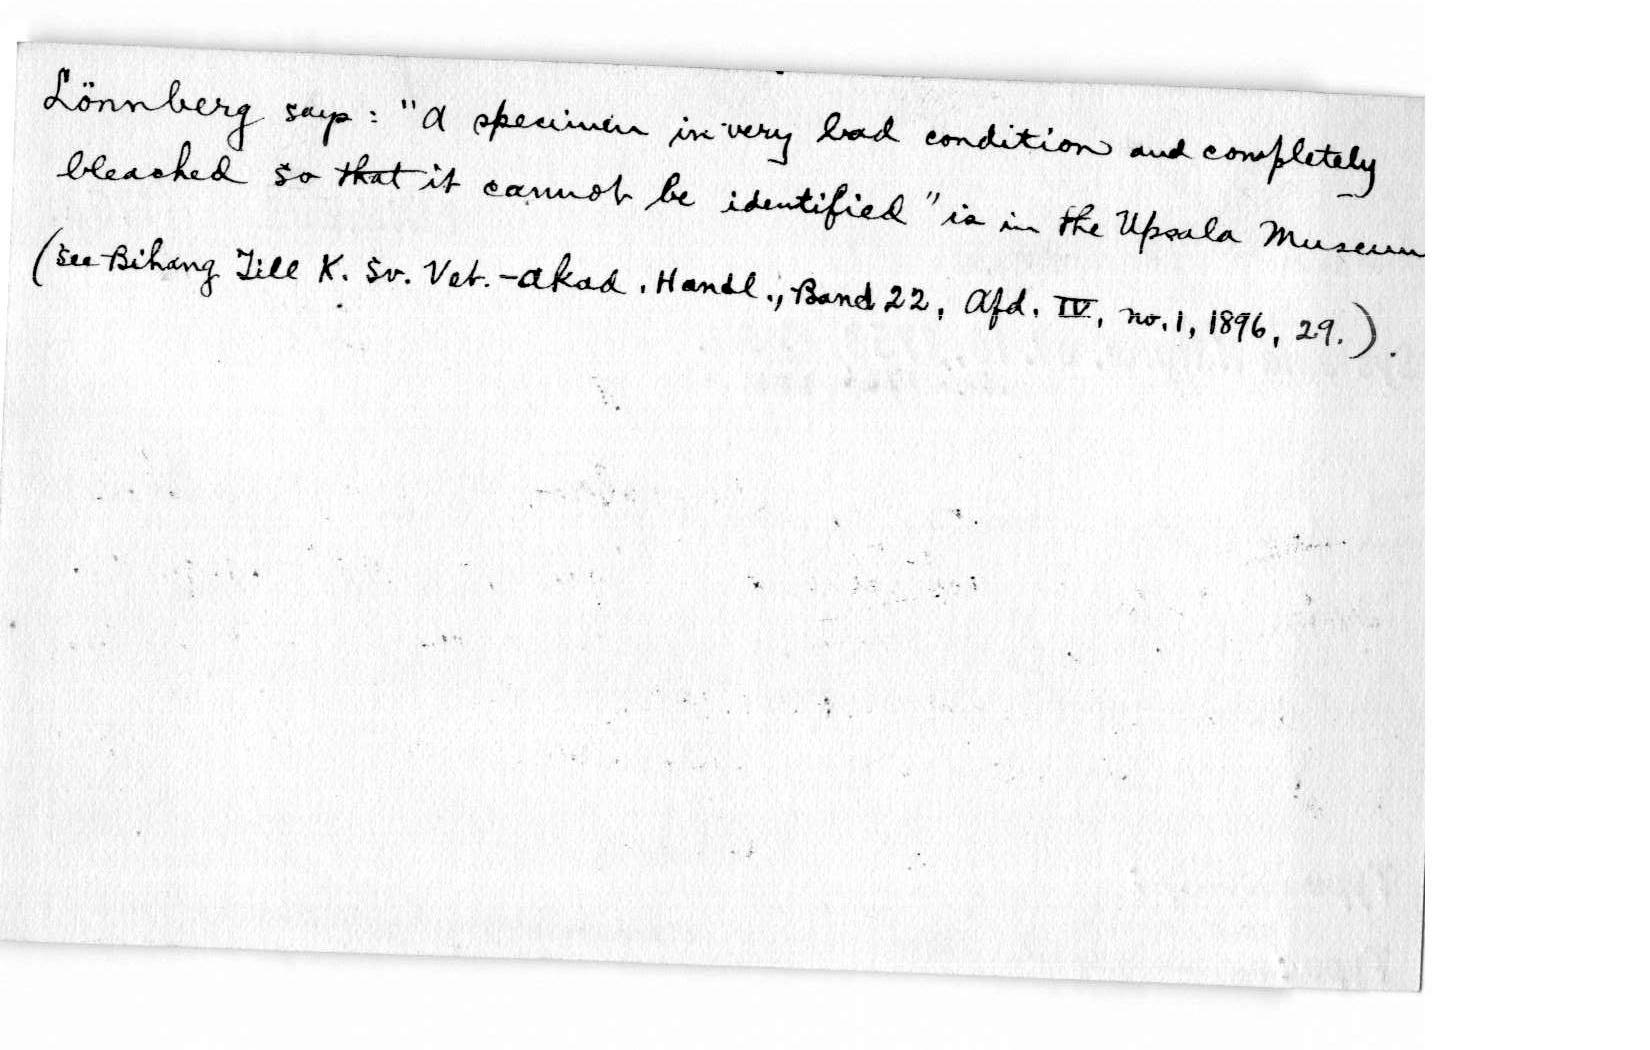 Lönnberg says: "A specimen in very bad condition and completely
bleached so that it cannot be identified" is in the Upsala Museum
(See Bihang Till K. Sv. Vet.-Akad. Handl., Band 22, Afd. IV, no. 1, 1896, 29.).